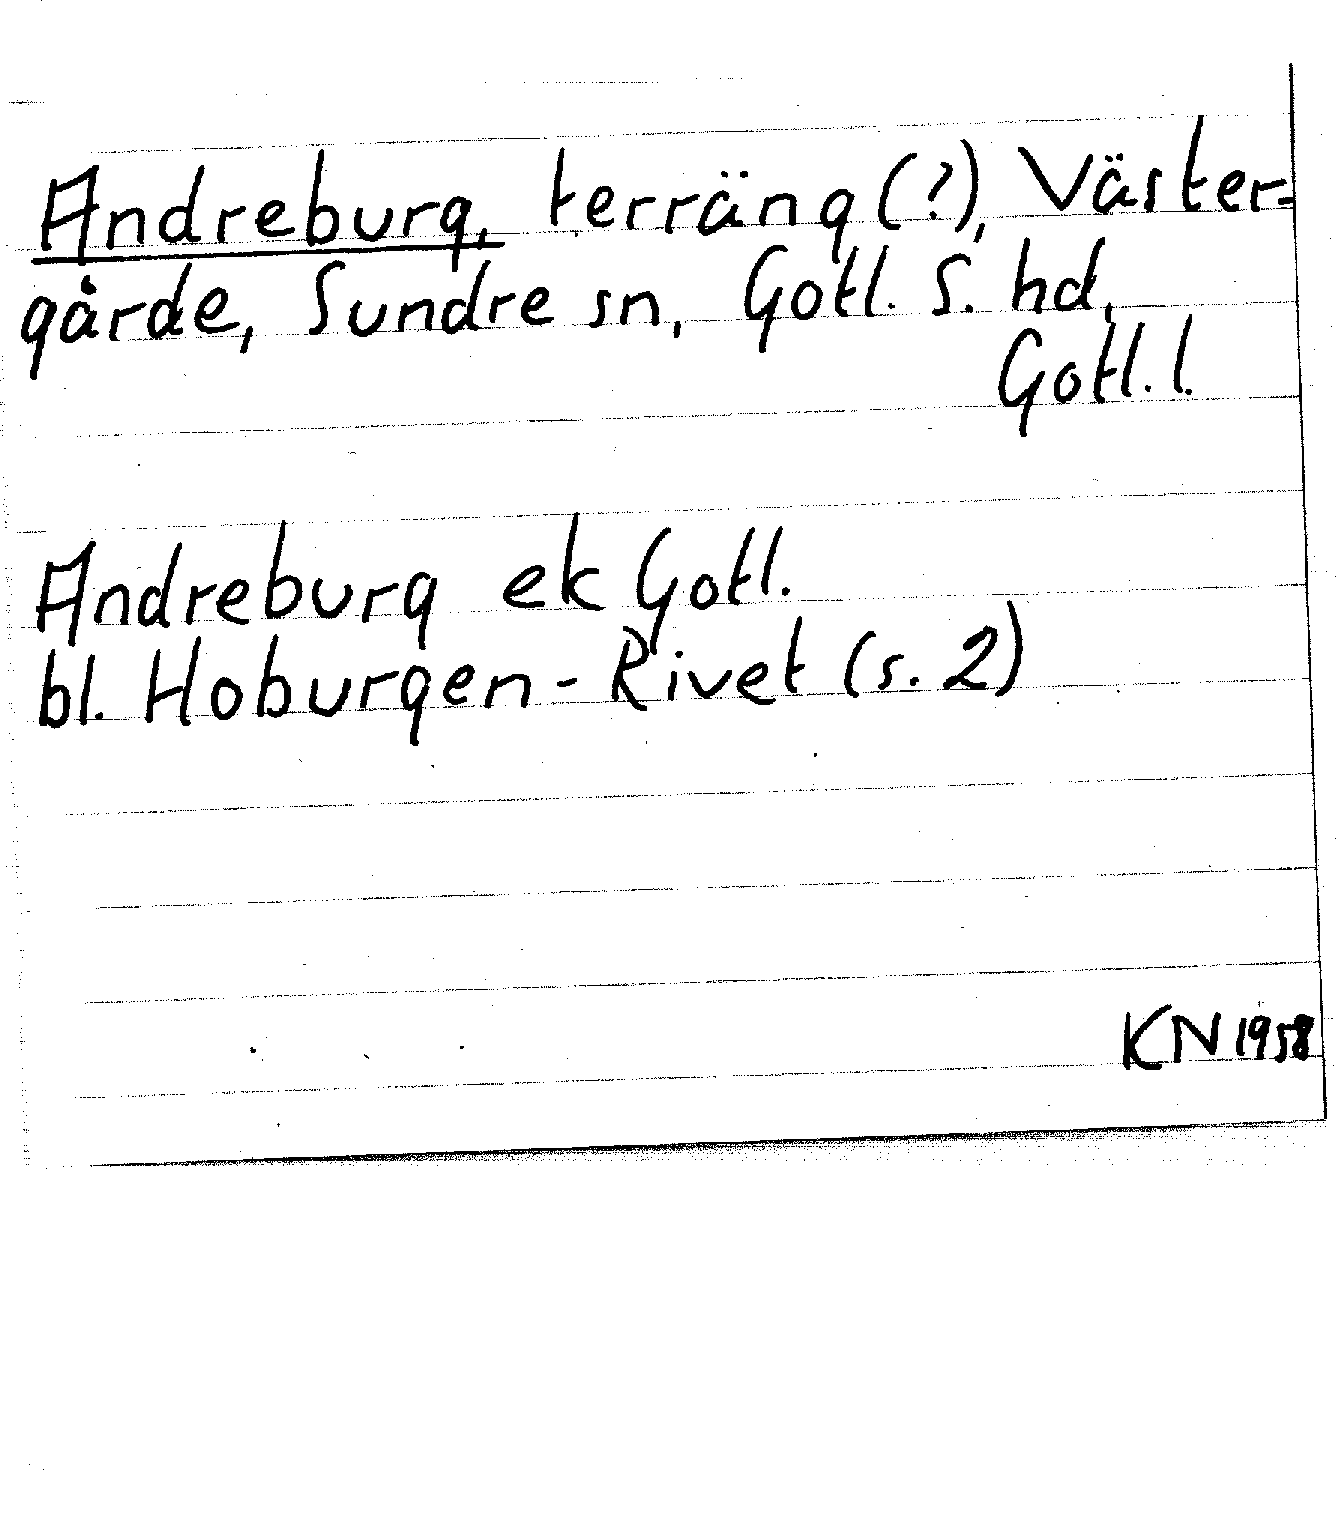 Andreburg, terräng (?), Väster-
gårde, Sundre sn, Gotl. S. hd,
Gotl. l.
Andreburg ek Gotl.
bl. Hoburgen - Rivet (s. 2)
KN 1958